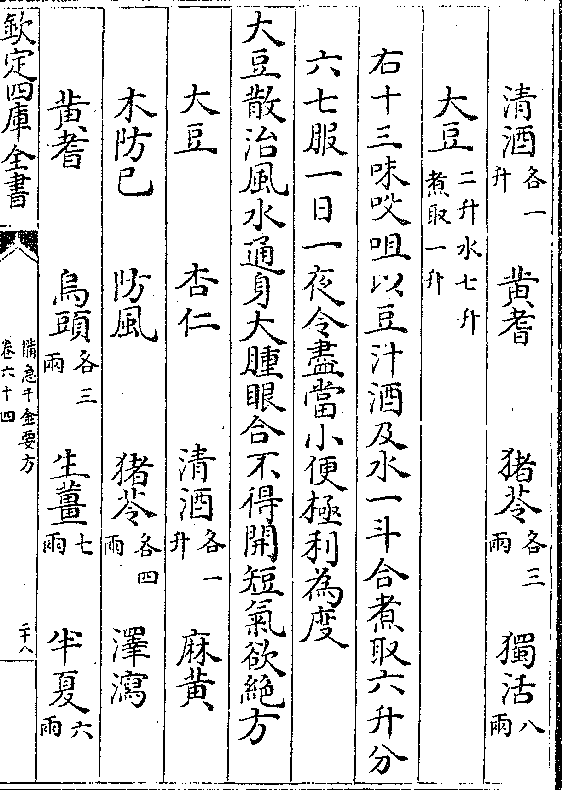 清酒各一升 黄耆 猪苓各三兩 獨活八兩
大豆二升水七升煮取一升
右十三味㕮咀以豆汁酒及水一斗合煮取六升分
六七服一日一夜令盡當小便極利為度
大豆散治風水通身大腫眼合不得開短氣欲絶方
大豆 杏仁 清酒各一升 麻黄
木防已 防風 猪苓各四兩 澤瀉
黄耆 烏頭各三兩 生薑七兩 半夏六兩
欽定四庫全書 備急千金要方卷六十四 二十八